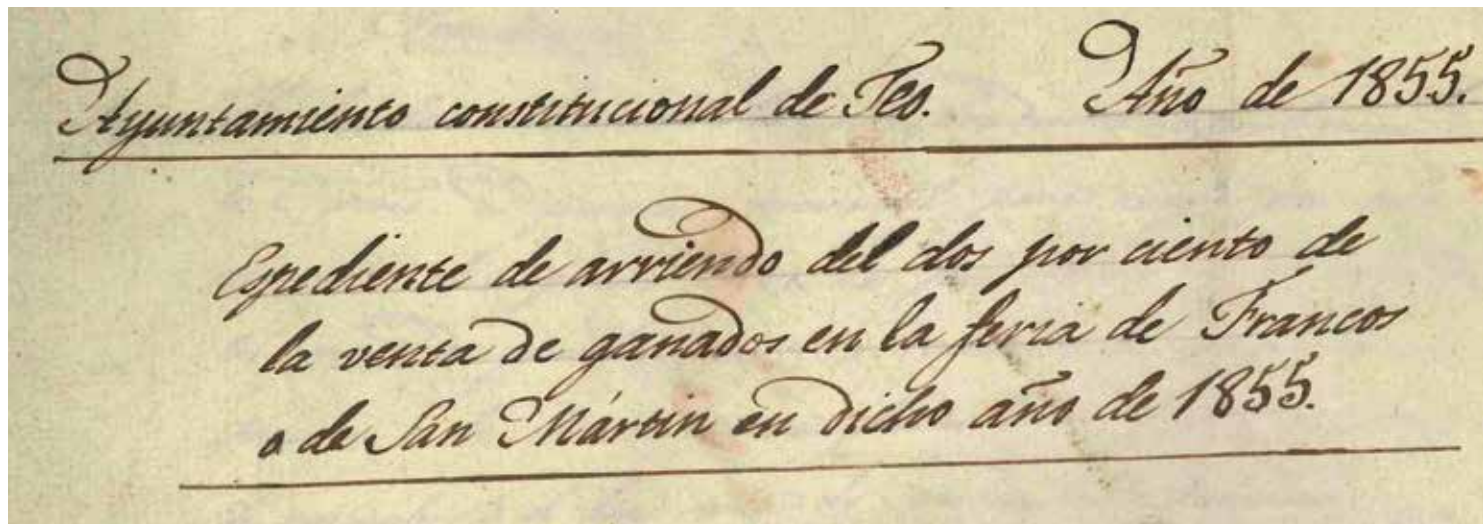 Ayuntamiento constitucional de Teo. Año de 1855.
Espediente de arriendo del dos por ciento de
la venta de ganados en la feria de Francos
o de San Mártin en dicho año de 1855.